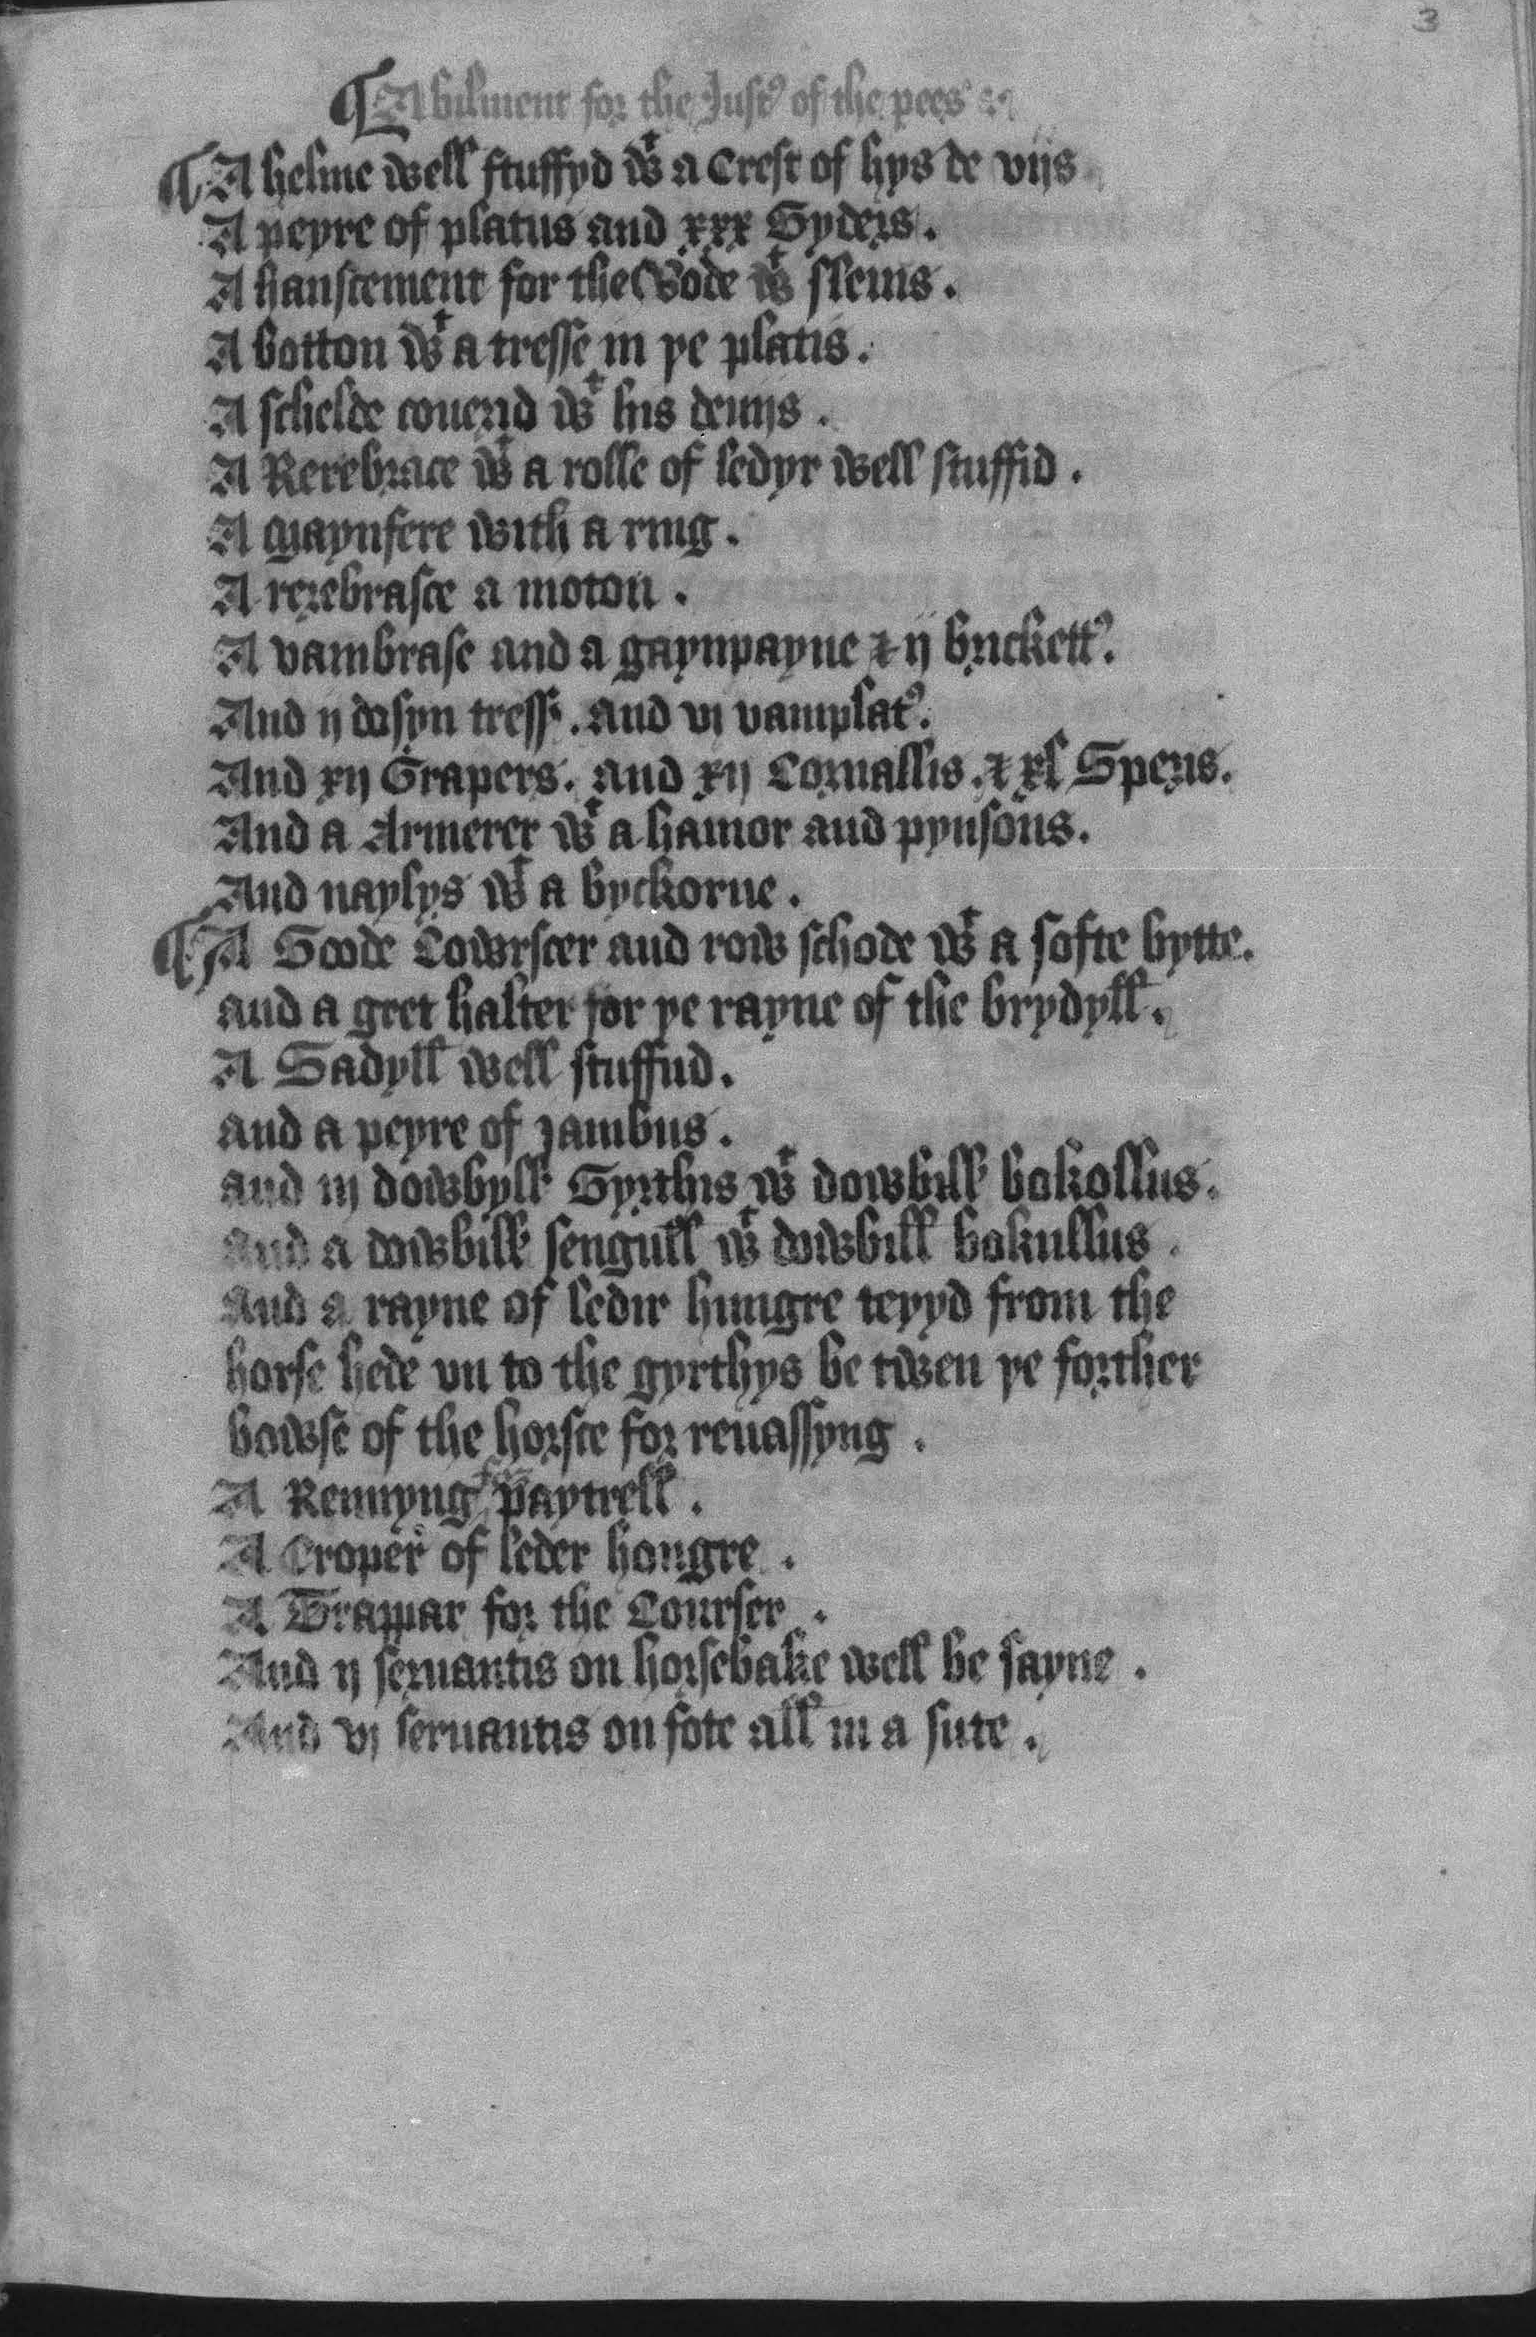 3
¶ Abilment for the Just⁹ of the pees
¶ A helme well stuffyd wᵗ a Crest of hys de viis
A peyre of platus and xxx Gyders.
A hanscement for the Bode wᵗ slevis.
A botton wᵗ a tresse in ye platis.
A schelde couerid wᵗ his deuijs.
A Rerebrace wᵗ a rolle of ledyr well stuffid.
A Maynfere with a ring.
A rerebrasce a moton.
A vambrase and a gaynpayne & ij brickett⁹.
And ij dosyn tress. And vj vamplat⁹.
And xij Grapers. and xij Cornallis. & xl Speris.
And a Armerer wᵗ a hamor and pynsons.
And naylys wᵗ a byckorne.
¶ A Goode Cowrscer and row schode wᵗ a softe bytte.
and a gret halter for ye rayne of the brydyll.
A Sadyll well stuffud.
and a peyre of jambus.
and iij dowbyll Gyrthis wᵗ dowbill bokollus.
and a dowbill sengull wᵗ dowbill bokullus.
and a rayne of ledir hungre teyyd from the
horse hede vn to the gyrthys be twen ye forther
bowse of the horsce for reuassyng.
A Rennyng paytrell.
A Croper of leder hongre.
A Trappar for the Courser.
And ij seruantis on horsebake well be sayne.
And vj seruantis on fote all in a sute.